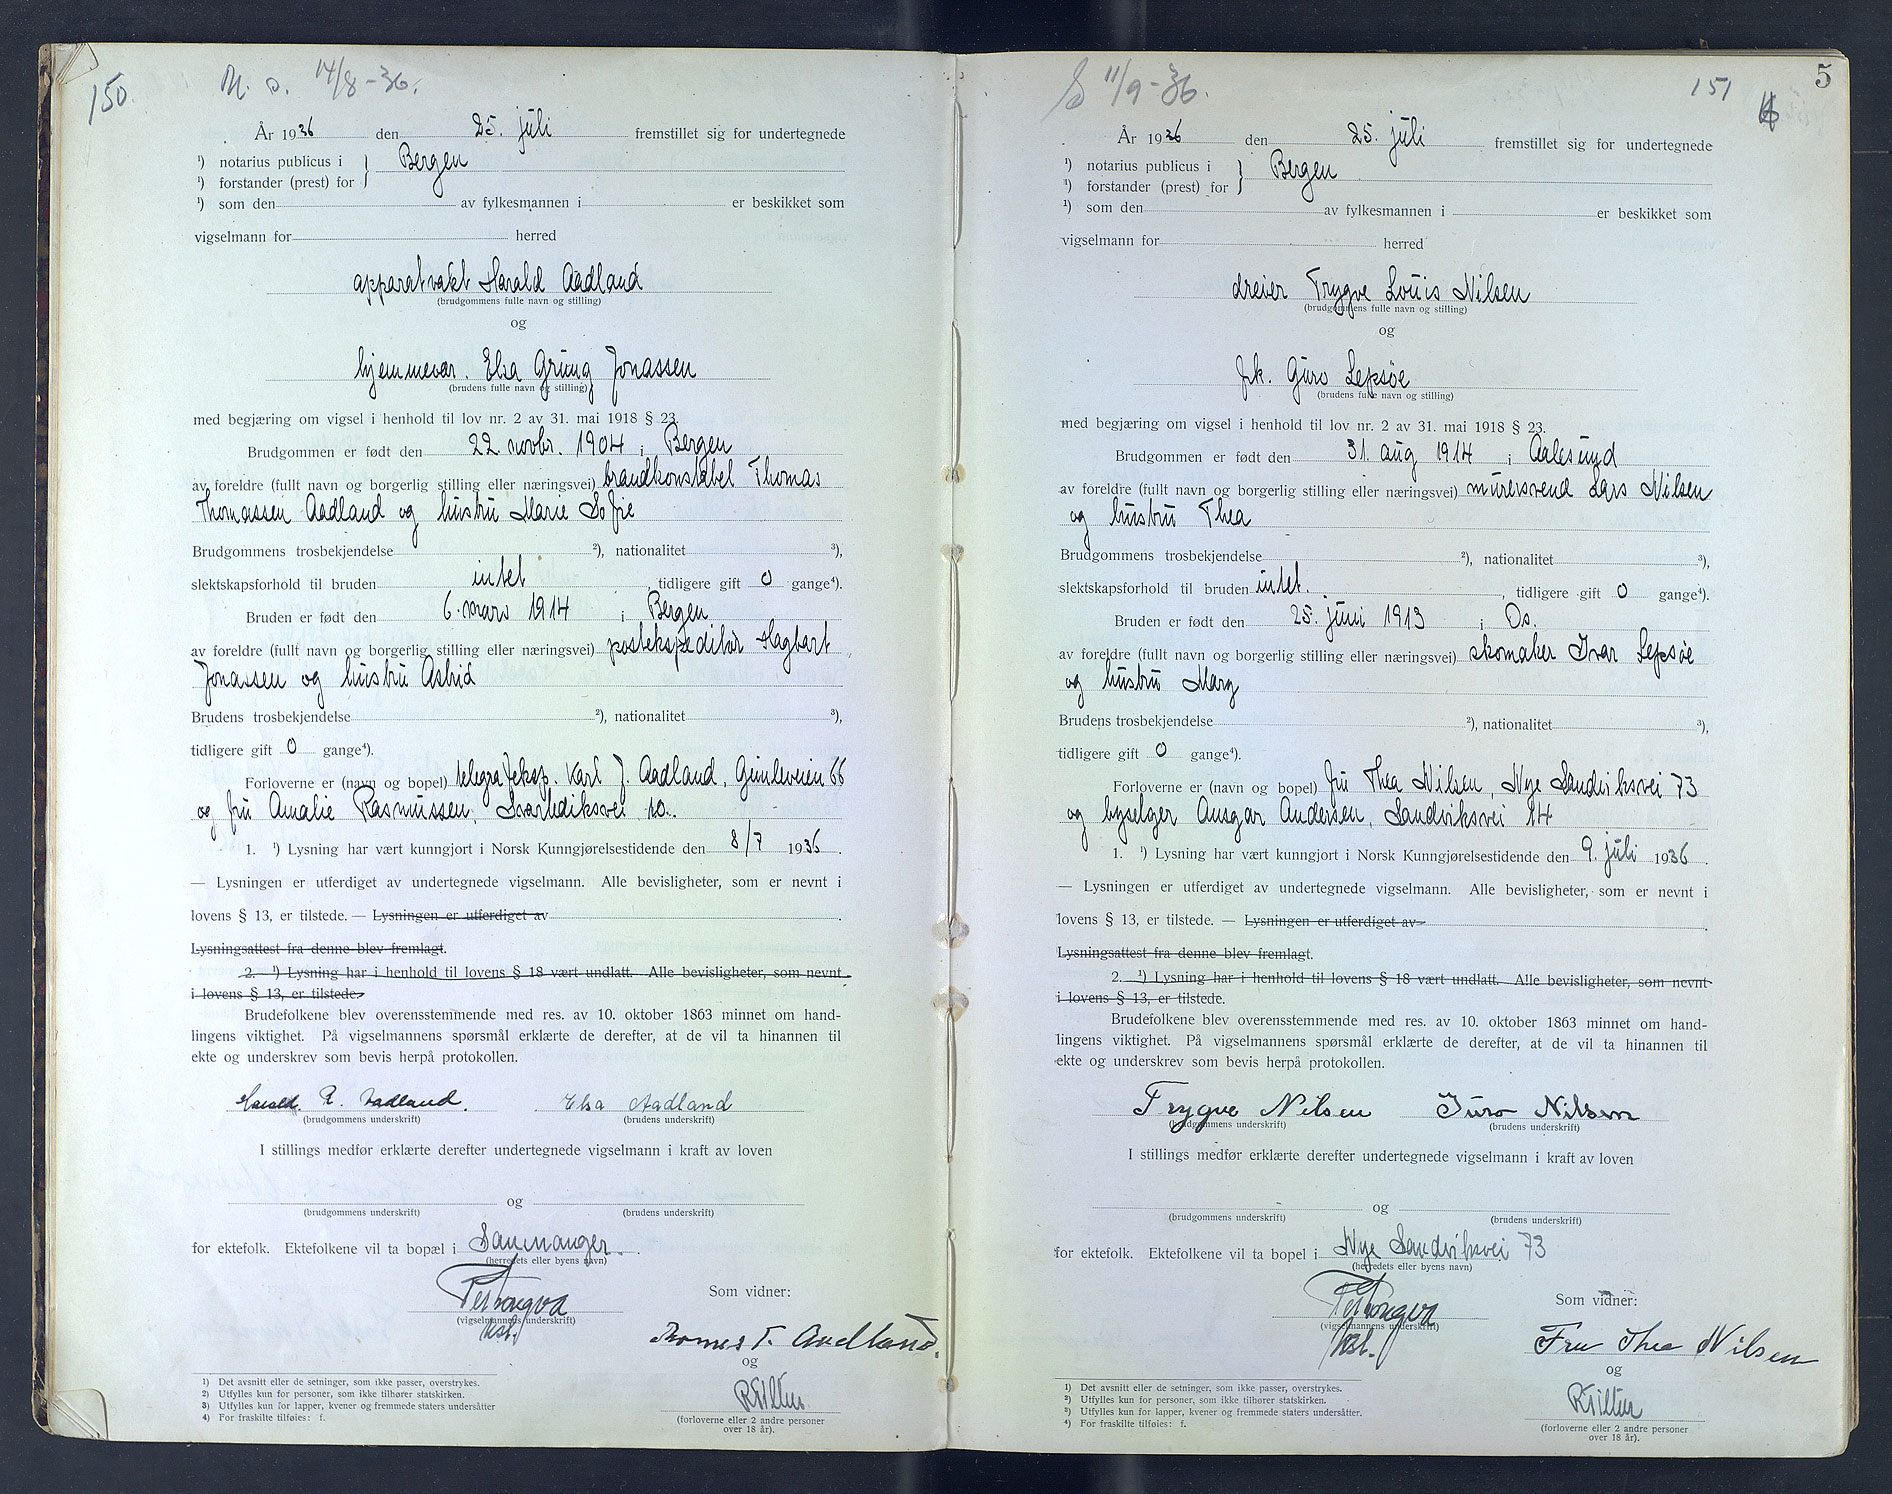 150
14/8-36.
År 1936 den 25. juli fremstillet sig for undertegnede
¹) notarius publicus i } Bergen
¹) forstander (prest) for
¹) som den av fylkesmannen i er beskikket som
vigselmann for herred
apparatvakt Harald Aadland
(brudgommens fulle navn og stilling)
og
hjemmevær. Elsa Grung Jonassen
(brudens fulle navn og stilling)
med begjæring om vigsel i henhold til lov nr. 2 av 31. mai 1918 § 23.
Brudgommen er født den 22 novbr. 1904 i Bergen
av foreldre (fullt navn og borgerlig stilling eller næringsvei) brandkonstabel Thomas
Thomassen Aadland og hustru Marie Sofie
Brudgommens trosbekjendelse ²), nationalitet ³),
slektskapsforhold til bruden intet, tidligere gift 0 gange⁴).
Bruden er født den 6. mars 1914 i Bergen
av foreldre (fullt navn og borgerlig stilling eller næringsvei) postekspeditør Hagbart
Jonassen og hustru Astrid
Brudens trosbekjendelse ²), nationalitet ³),
tidligere gift 0 gange⁴).
Forloverne er (navn og bopel) telegrafeksp. Karl J. Aadland, Gimleveien 66
og fru Amalie Rasmussen, Svartediksvei 10.
1. ¹) Lysning har vært kunngjort i Norsk Kunngjørelsestidende den 8/7 1936.
— Lysningen er utferdiget av undertegnede vigselmann. Alle bevisligheter, som er nevnt i
lovens § 13, er tilstede. — Lysningen er utferdiget av
Lysningsattest fra denne blev fremlagt.
2. ¹) Lysning har i henhold til lovens § 18 vært undlatt. Alle bevisligheter, som nevnt
i lovens § 13, er tilstede.
Brudefolkene blev overensstemmende med res. av 10. oktober 1863 minnet om hand-
lingens viktighet. På vigselmannens spørsmål erklærte de derefter, at de vil ta hinannen til
ekte og underskrev som bevis herpå protokollen.
Harald R. Aadland. Elsa Aadland
(brudgommens underskrift) (brudens underskrift)
I stillings medfør erklærte derefter undertegnede vigselmann i kraft av loven
og
(brudgommens underskrift) (brudens underskrift)
for ektefolk. Ektefolkene vil ta bopæl i Samnanger.
(herredets eller byens navn)
Som vidner:
(vigselmannens underskrift)
Thomas T. Aadland.
og
(forloverne eller 2 andre personer
over 18 år).
1) Det avsnitt eller de setninger, som ikke passer, overstrykes.
2) Utfylles kun for personer, som ikke tilhører statskirken.
3) Utfylles kun for lapper, kvener og fremmede staters undersåtter
4) For fraskilte tilføies: f.
11/9-36.
151
5
År 1936 den 25. juli fremstillet sig for undertegnede
¹) notarius publicus i } Bergen
¹) forstander (prest) for
¹) som den av fylkesmannen i er beskikket som
vigselmann for herred
dreier Trygve Louis Nilsen
(brudgommens fulle navn og stilling)
og
frk. Guro Lepsøe
(brudens fulle navn og stilling)
med begjæring om vigsel i henhold til lov nr. 2 av 31. mai 1918 § 23.
Brudgommen er født den 31. aug 1914 i Aalesund
av foreldre (fullt navn og borgerlig stilling eller næringsvei) mursvend Lars Nilsen
og hustru Thea
Brudgommens trosbekjendelse ²), nationalitet ³),
slektskapsforhold til bruden intet., tidligere gift 0 gange⁴).
Bruden er født den 25. juni 1913 i Os.
av foreldre (fullt navn og borgerlig stilling eller næringsvei) skomaker Ivar Lepsøe
og hustru Marg
Brudens trosbekjendelse ²), nationalitet ³),
tidligere gift 0 gange⁴).
Forloverne er (navn og bopel) fru Thea Nilsen, Nye Sandviksvei 73
og byselger Ansgar Andersen, Sandviksvei 14
1. ¹) Lysning har vært kunngjort i Norsk Kunngjørelsestidende den 9. juli 1936.
— Lysningen er utferdiget av undertegnede vigselmann. Alle bevisligheter, som er nevnt i
lovens § 13, er tilstede. — Lysningen er utferdiget av
Lysningsattest fra denne blev fremlagt.
2. ¹) Lysning har i henhold til lovens § 18 vært undlatt. Alle bevisligheter, som nevnt
i lovens § 13, er tilstede.
Brudefolkene blev overensstemmende med res. av 10. oktober 1863 minnet om hand-
lingens viktighet. På vigselmannens spørsmål erklærte de derefter, at de vil ta hinannen til
ekte og underskrev som bevis herpå protokollen.
Trygve Nilsen Guro Nilsen
(brudgommens underskrift) (brudens underskrift)
I stillings medfør erklærte derefter undertegnede vigselmann i kraft av loven
og
(brudgommens underskrift) (brudens underskrift)
for ektefolk. Ektefolkene vil ta bopel i Nye Sandviksvei 73
(herredets eller byens navn)
Som vidner:
(vigselmannens underskrift)
Fru Thea Nilsen
og
(forloverne eller 2 andre personer
over 18 år).
¹) Det avsnitt eller de setninger, som ikke passer, overstrykes.
²) Utfylles kun for personer, som ikke tilhører statskirken.
³) Utfylles kun for lapper, kvener og fremmede staters undersåtter.
⁴) For fraskilte tilføies: f.